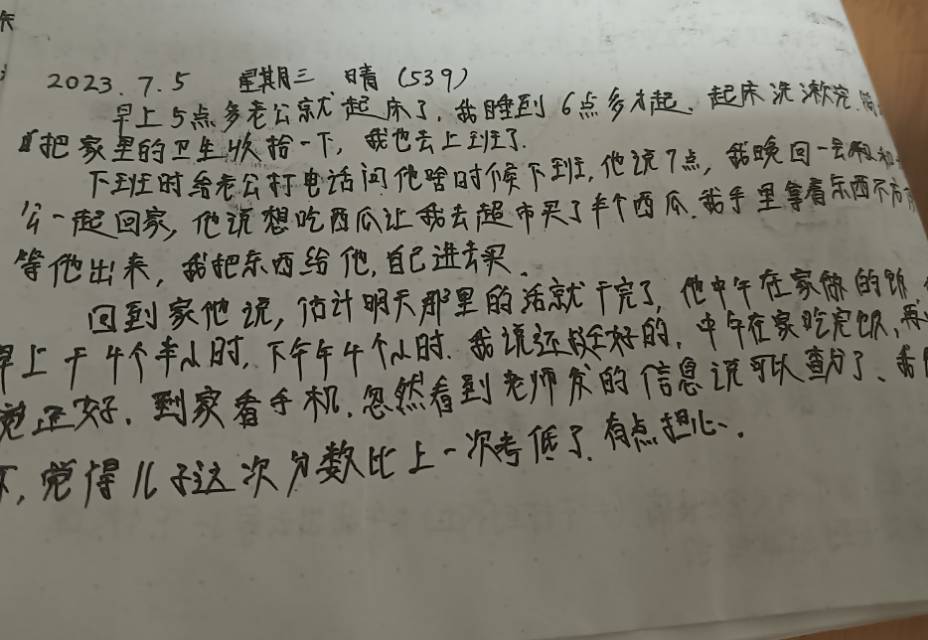 2023.7.5 星期三 晴 (539)
早上5点多老公就起床了,我睡到6点多才起.起床洗漱完.简
把家里的卫生收拾一下,我也去上班了.
下班时给老公打电话问他啥时候下班,他说7点,我晚回一会和
公一起回家,他说想吃西瓜让我去超市买了半个西瓜.我手里拿着东西不方
等他出来,我把东西给他,自己进去买.
回到家他说,估计明天那里的活就干完了,他中午在家做的饭,
早上干4个半小时,下午干4个小时.我说还挺好的,中午在家吃完饭,再
觉正好.到家看手机,忽然看到老师发的信息说可以查分了、我
下,觉得儿子这次分数比上一次考低了.有点担心.